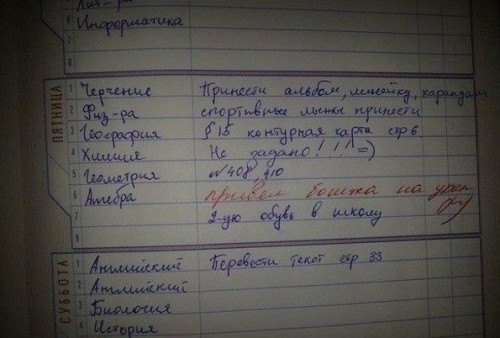 Лит-ра
6 Информатика
7
8
ПЯТНИЦА
1 Черчение Принести альбом, линейку, карандаш
2 Физ-ра спортивные лыжи принести
3 География § 15 контурная карта стр 6
4 Химия Не задано!!!! =)
5 Геометрия №408, 410
6 Алгебра привёл бошка на урок
7 2-ую обувь в школу
8
СУББОТА
1 Английский Перевести текст стр 33
2 Английский
3 Биология
4 История